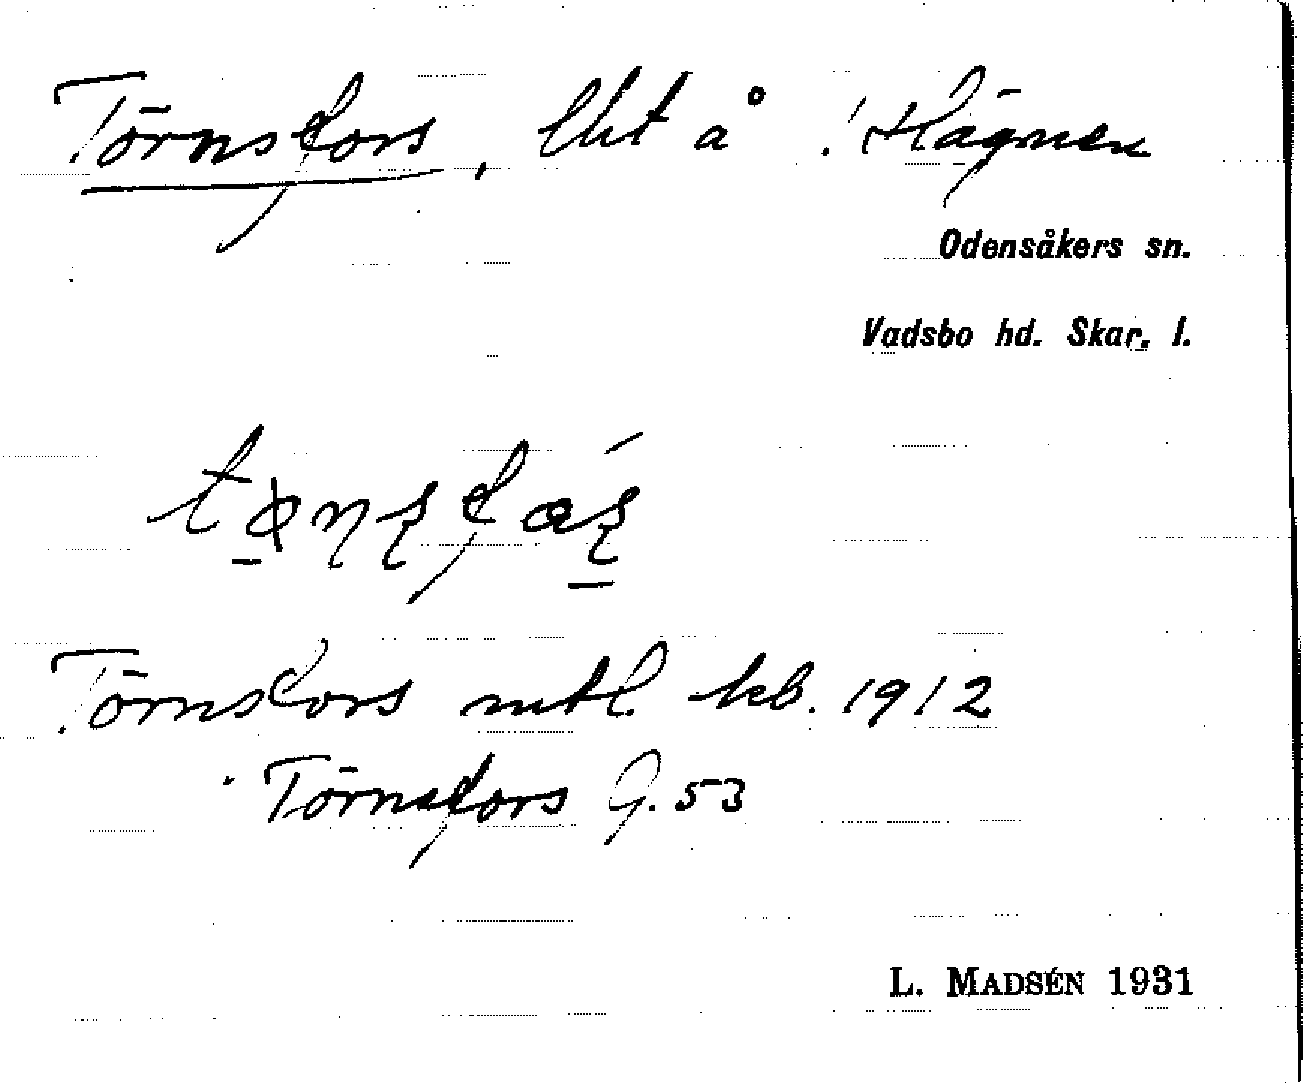 Törnsfors, lht å Hägnen
Odensåkers sn.
Vadsbo hd. Skar. l.
Törnsfors mtl. kb. 1912
Törnsfors G. 53
L. MADSÉN 1931